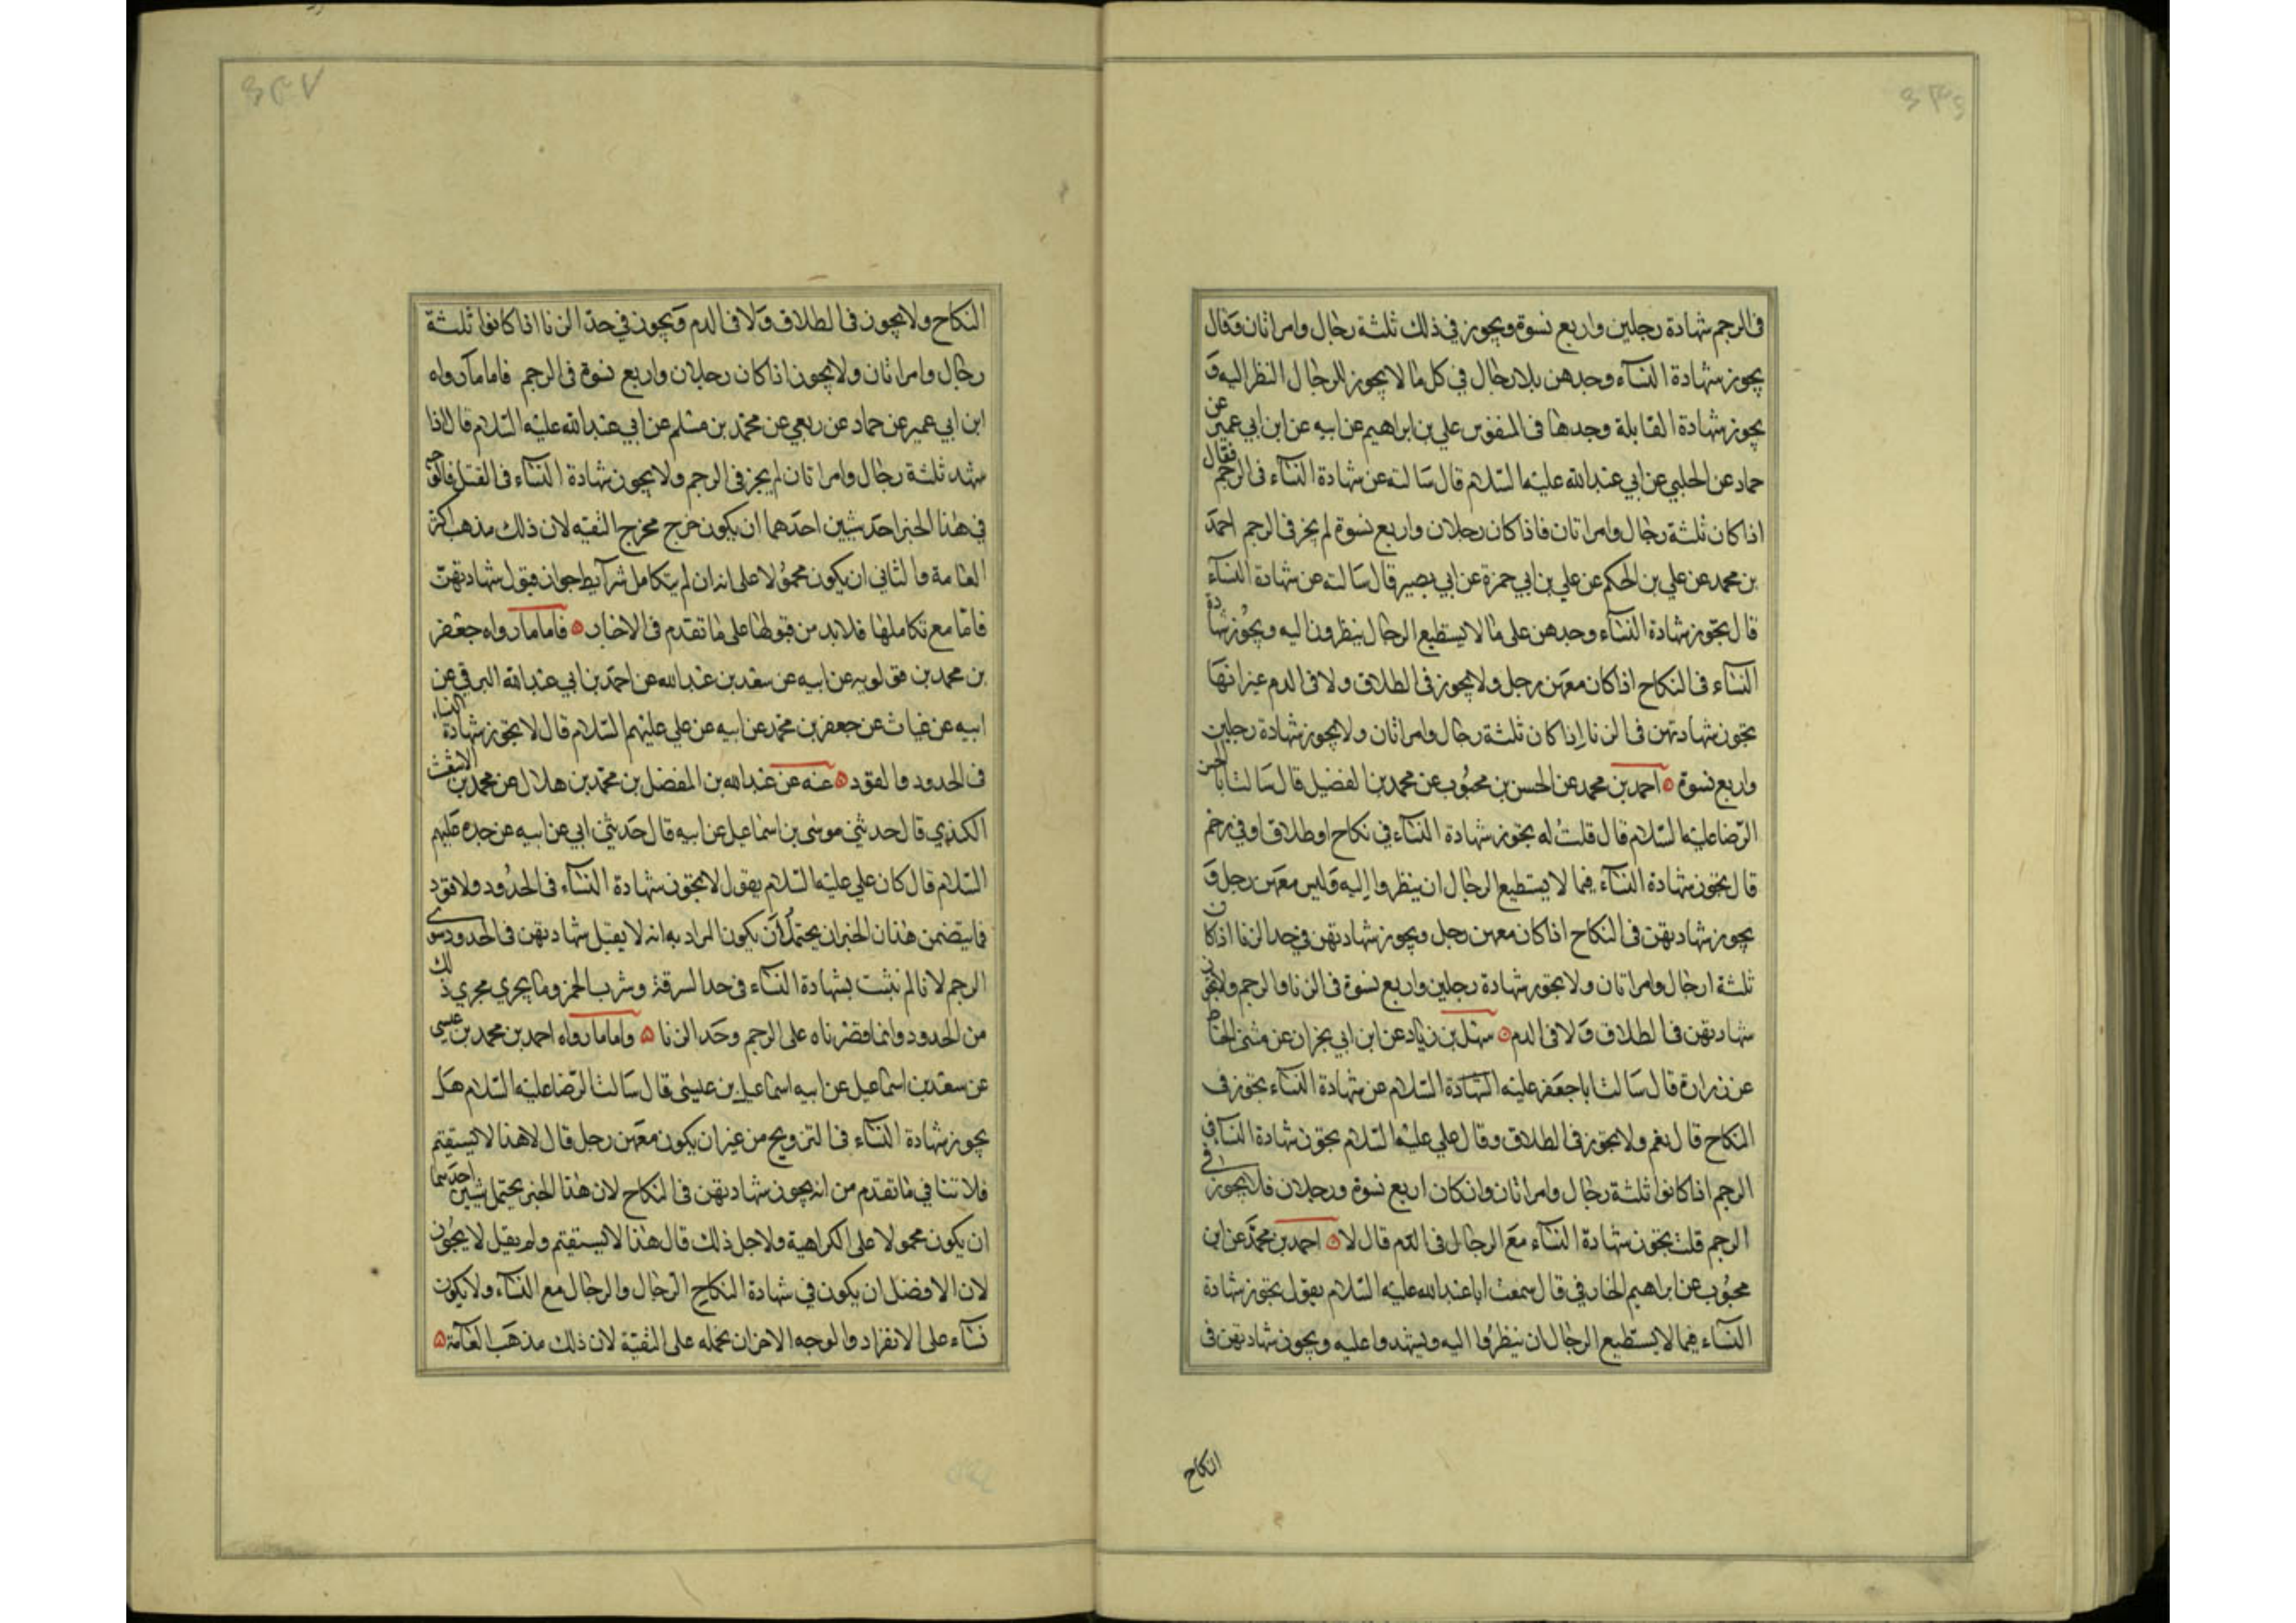 في الرجم شهادة رجلين واربع نسوة ويجوز في ذلك ثلثة رجال وامراتان وقال
يجوز شهادة النسآء وحدهن بلا رجال في كل ما لا يجوز للرجال النظر اليه و
يجوز شهادة القابلة وحدها في المنفوس علي بن ابراهيم عن ابيه عن ابن ابي عمير عن
حماد عن الحلبي عن ابي عبد الله عليه السلام قال سالته عن شهادة النسآء في الرجم فقال
اذا كان ثلثة رجال وامراتان فاذا كان رجلان واربع نسوة لم يجز في الرجم احمد
بن محمد عن علي بن الحكم عن علي بن ابي حمزة عن ابي بصير قال سالته عن شهادة النسآء
قال تجوز شهادة النسآء وحدهن على ما لا يستطيع الرجال ينظرون اليه ويجوز شهادة
النسآء في النكاح اذا كان معهن رجل ولا يجوز في الطلاق ولا في الدم غير انها
تجوز شهادتهن في الزنا اذا كان ثلثة رجال وامراتان ولا يجوز شهادة رجلين
واربع نسوة ه احمد بن محمد عن الحسن بن محبوب عن محمد بن الفضيل قال سالت ابا الحسن
الرضا عليه السلام قال قلت له تجوز شهادة النسآء في نكاح او طلاق او في رجم
قال تجوز شهادة النسآء فيما لا يستطيع الرجال ان ينظروا اليه وليس معهن رجل و
يجوز شهادتهن في النكاح اذا كان معهن رجل ويجوز شهادتهن في حد الزنا اذا كان
ثلثة ارجال وامراتان ولا تجوز شهادة رجلين واربع نسوة في الزنا والرجم ولا تجوز
شهادتهن في الطلاق ولا في الدم ه سهل بن زياد عن ابن ابي نجران عن مثنى الحناط
عن زرارة قال سالت ابا جعفر عليه الشهادة السلام عن شهادة النسآء تجوز في
النكاح قال نعم ولا تجوز في الطلاق وقال علي عليه السلام تجوز شهادة النسآء في
الرجم اذا كانوا ثلثة رجال وامراتان وان كان اربع نسوة ورجلان فلا يجوز في
الرجم قلت تجوز شهادة النسآء مع الرجال في الدم قال لا ه احمد بن محمد عن ابن
محبوب عن ابراهيم الخارفي قال سمعت ابا عبد الله عليه السلام يقول تجوز شهادة
النسآء فيما لا يستطيع الرجال ان ينظروا اليه ويشهدوا عليه ويجوز شهادتهن في
النكاح
النكاح ولا يجوز في الطلاق ولا في الدم ويجوز في حد الزنا اذا كانوا ثلثة
رجال وامراتان ولا يجوز اذا كان رجلان واربع نسوة في الرجم فاما ما رواه
ابن ابي عمير عن حماد عن ربعي عن محمد بن مسلم عن ابي عبد الله عليه السلام قال اذا
شهد ثلثة رجال وامراتان لم يجز في الرجم ولا يجوز شهادة النسآء في القتل فالوجه
في هذا الخبر احد شيئين احدهما ان يكون خرج مخرج التقيه لان ذلك مذهب اكثر
العامة والثاني ان يكون محمولا على انه ان لم يتكامل شرآيط جواز قبول شهادتهن
فاما مع تكاملها فلا بد من قبولها على ما تقدم في الاخبار ه فاما ما رواه جعفر
بن محمد بن قولويه عن ابيه عن سعد بن عبد الله عن احمد بن ابي عبد الله البرقي عن
ابيه عن غياث عن جعفر بن محمد عن ابيه عن علي عليهم السلام قال لا تجوز شهادة النساء
في الحدود والقود ه عنه عن عبد الله بن المفضل بن محمد بن هلال عن محمد بن الاشعث
الكندي قال حدثني موسى بن اسماعيل عن ابيه قال حدثني ابي عن ابيه عن جده عليهم
السلام قال كان علي عليه السلام يقول لا تجوز شهادة النسآء في الحدود ولا قود
فما يتضمن هذان الخبران يحتمل ان يكون المراد به انه لا يقبل شهادتهن في الحدود سوى
الرجم لانا لم نثبت بشهادة النسآء في حد السرقة وشرب الخمر وما يجري مجري ذلك
من الحدود وانما قصرناه على الرجم وحد الزنا ه واما ما رواه احمد بن محمد بن عيسى
عن سعد بن اسماعيل عن ابيه اسماعيل بن عيسى قال سالت الرضا عليه السلام هل
يجوز شهادة النسآء في التزويج من غير ان يكون معهن رجل قال لا هذا لا يستقيم
فلا تنافي ما تقدم من انه يجوز شهادتهن في النكاح لان هذا الخبر يحتمل شيئين احدهما
ان يكون محمولا على الكراهية ولاجل ذلك قال هذا لا يستقيم ولم يقل لا يجوز
لان الافضل ان يكون في شهادة النكاح الرجال والرجال مع النسآء ولا يكون
نسآء على الانفراد والوجه الاخر ان نحمله على التقية لان ذلك مذهب العامة ه